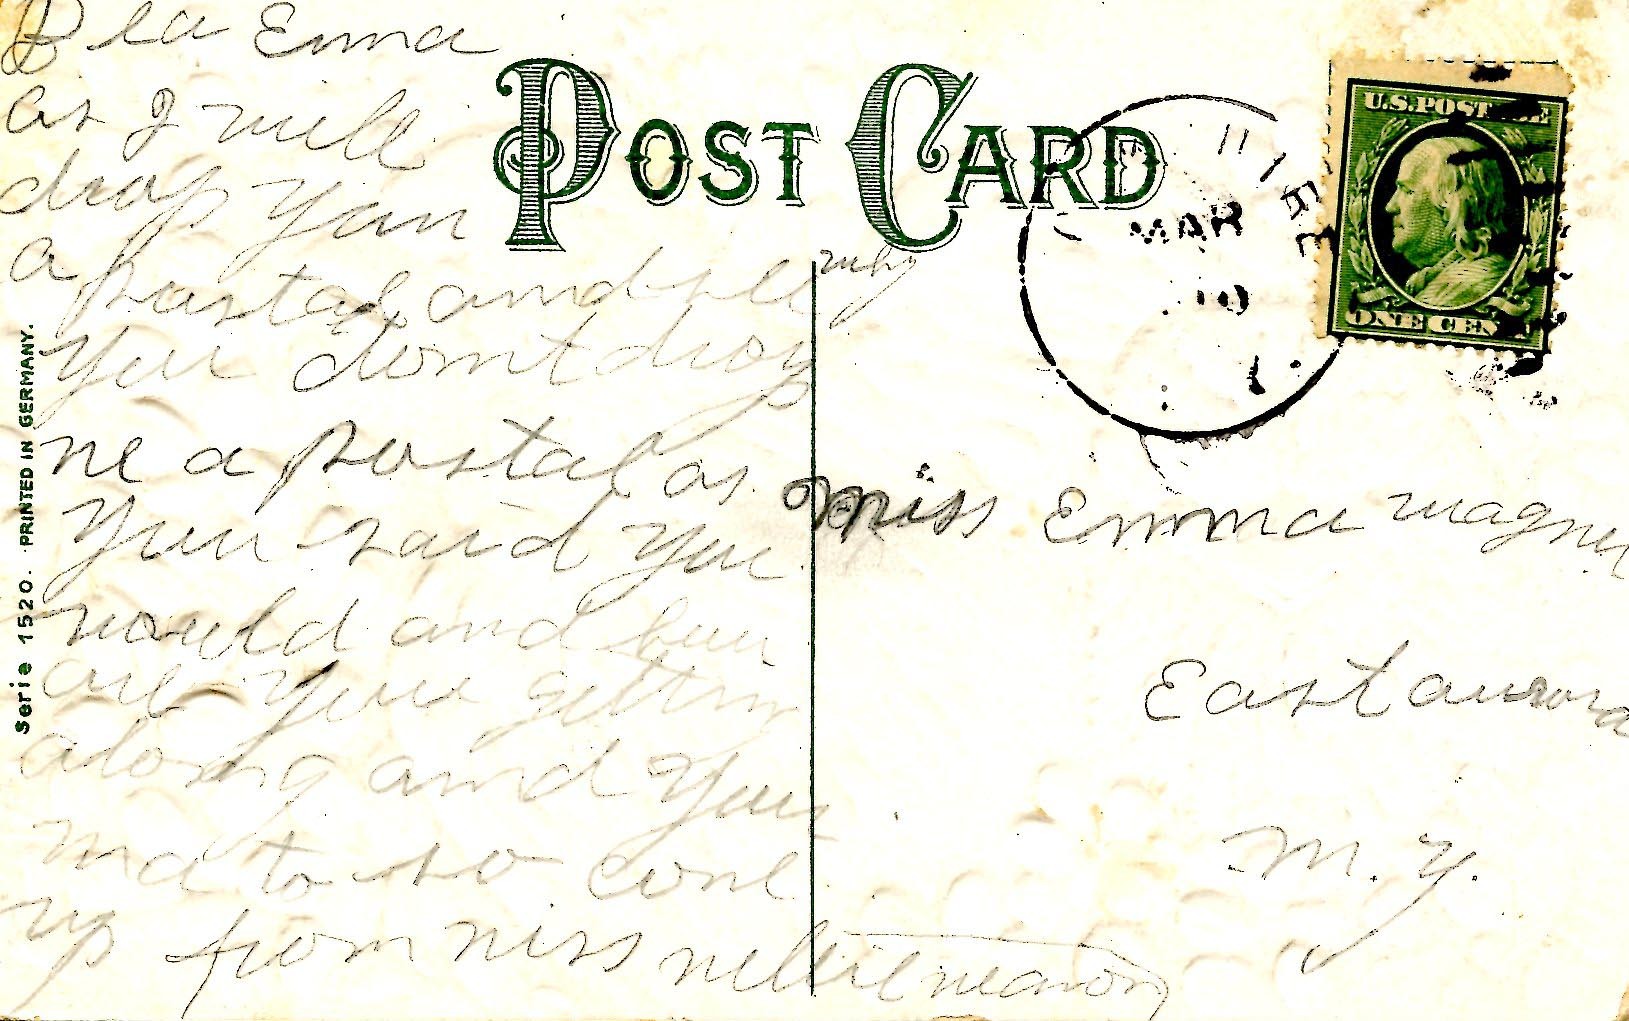 Dea Emma
as I will
drop you
a postal and see why
you dont drop
me a postal as
you said you
would and how
are you getting
along and your
ma to so come
up from miss nellie
POST CARD
MAR
10
U.S. POSTAGE
ONE CENT
miss Emma magner
East aurora
N. Y.
Serie 1520. PRINTED IN GERMANY.